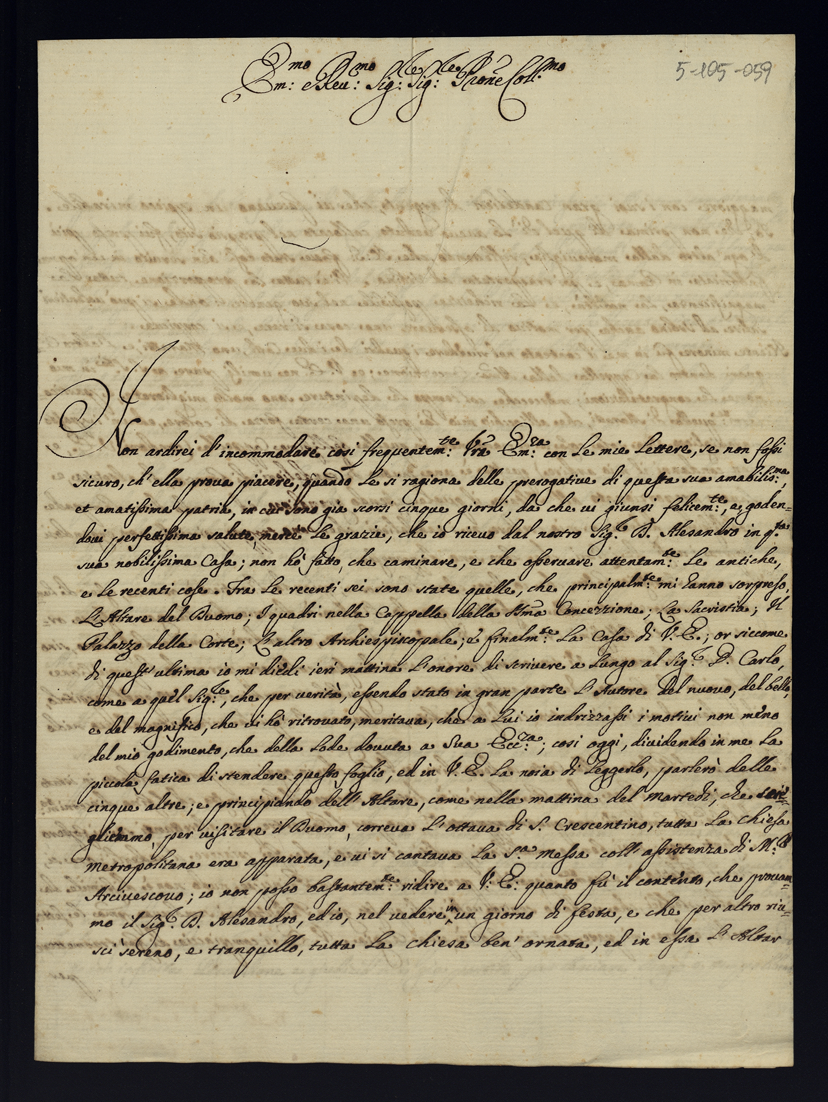 5-105-059
Em:mo e Reu:mo Sig:re Sig:re Pron̄e Coll:mo
Non ardirei d'incommodare così frequentem:te Vr̄a Em:za con le mie Lettere, se non fossi
sicuro, ch'ella prova piacere, quando le si ragiona delle prerogative di questa sua amabilis:ma,
et amatissima patria, in cui sono già scorsi cinque giorni, da che vi giunsi felicem:te, e goden-
dovi perfettissima salute, mercè le grazie, che io ricevo dal nostro Sig:r D. Alesandro in q:ta
sua nobilissima Casa; non hò fatto, che caminare, e che osservare attentam:te le antiche,
e le recenti cose. Fra le recenti sei sono state quelle, che principalm:te mi hanno sorpreso,
L'Altare del Duomo; I quadri nella Cappella della Sm̄a Concezzione; La Sacristia; Il
Palazzo della Corte; L'altro Archiespiscopale; e finalm:te La Casa di V. E.; or siccome
di quest'ultima io mi diedi ieri mattina l'onore di scrivere a lungo al Sig:r D. Carlo,
come a quel Sig:re, che per verità, essendo stato in gran parte l'Autore del nuovo, del bello,
e del magnifico, che vi hò ritrovato, meritava, che a Lui io indrizzassi i motivi non meno
del mio godimento, che della lode dovuta a Sua Ecc:za; così oggi, dividendo in me la
piccola fatica di stendere questo foglio, ed in V. E. la noia di leggerlo, parlerò delle
cinque altre; e principiando dell'Altare, come nella mattina del Martedì, che
per visitare il Duomo, correva l'ottava di S. Crescentino, tutta la Chiesa
metropolitana era apparata, e vi si cantava la S:a messa coll'assistenza di M:r
Arcivescovo; io non posso bastantem:te ridire a V. E. quanto fù il contento, che provam-
mo il Sig:r D. Alesandro, ed io, nel vedere in un giorno di festa, e che per altro riu-
scì sereno, e tranquillo, tutta la chiesa ben'ornata, ed in essa l'Altar